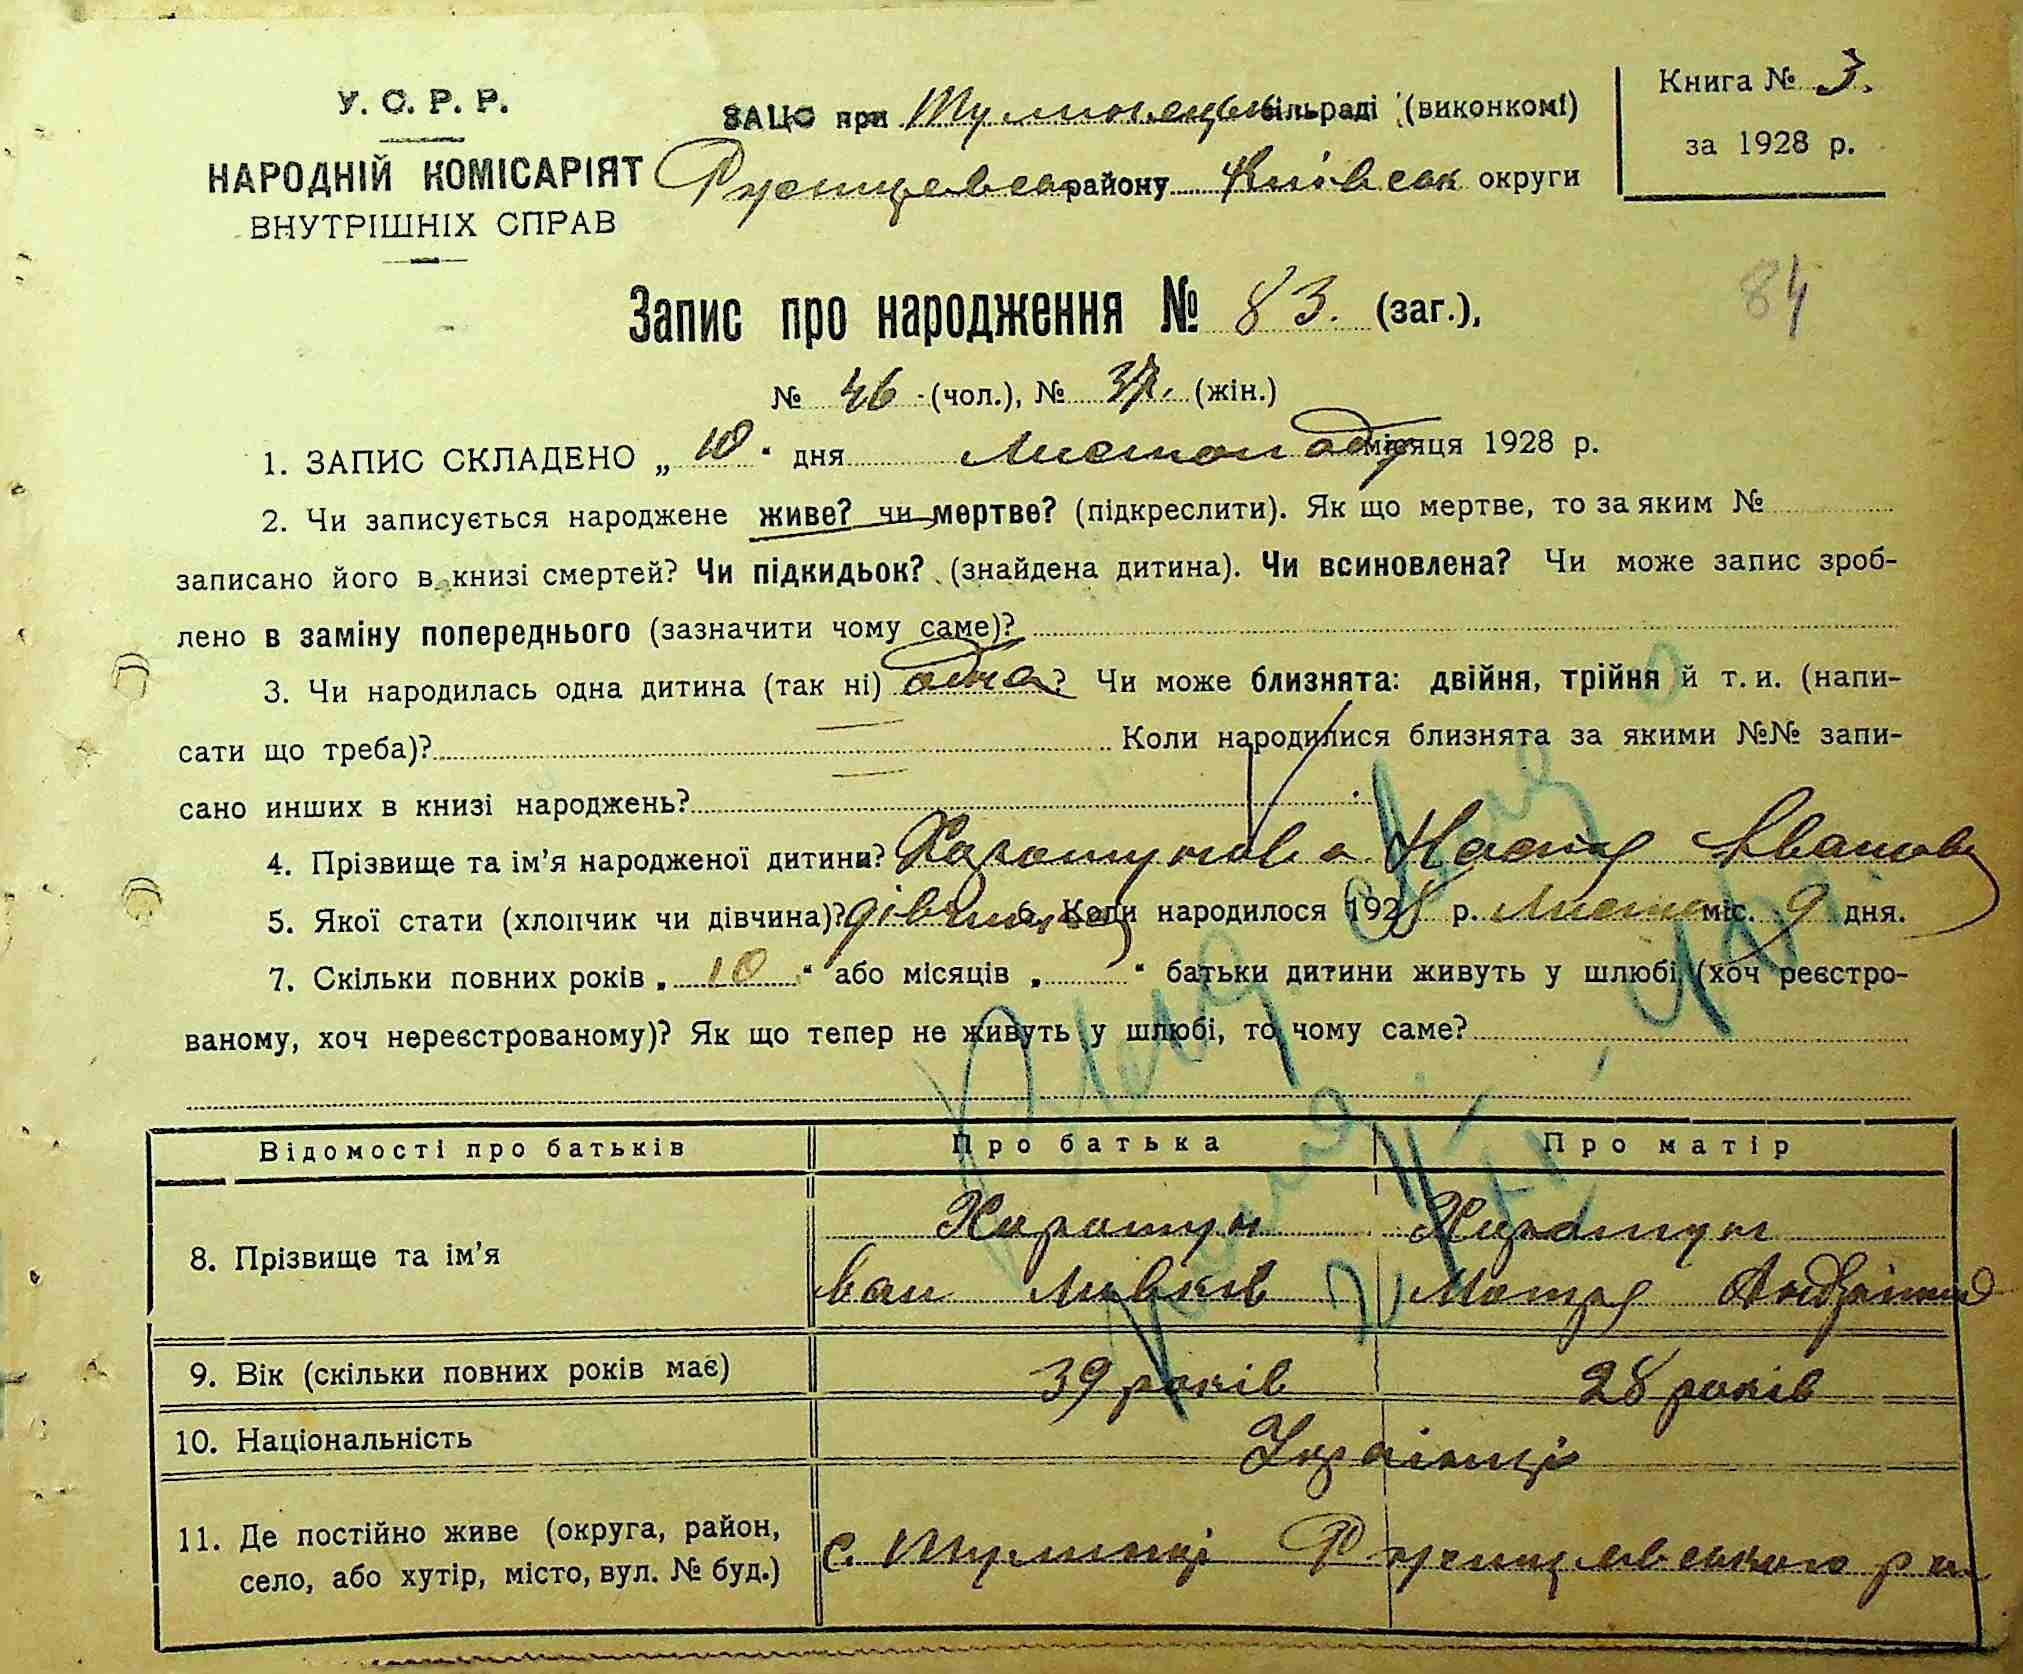 У. С. Р. Р.
НАРОДНІЙ КОМІСАРІЯТ
ВНУТРІШНІХ СПРАВ
ЗАЦС при Тулинецьк сільраді (виконкомі)
Ржищевськ району Київськ округи
Книга № 3.
за 1928 р.
84
Запис про народження № 83. (заг.),
№ 46 (чол.), № 37. (жін.)
1. ЗАПИС СКЛАДЕНО „ 10 “ дня Листопаду місяця 1928 р.
2. Чи записується народжене живе? чи мертве? (підкреслити). Як що мертве, то за яким №
записано його в книзі смертей? Чи підкидьок? (знайдена дитина). Чи всиновлена? Чи може запис зроб-
лено в заміну попереднього (зазначити чому саме)?
3. Чи народилась одна дитина (так ні) одна? Чи може близнята: двійня, трійня й т. и. (напи-
сати що треба)? Коли народилися близнята за якими №№ запи-
сано инших в книзі народжень?
4. Прізвище та ім’я народженої дитини? Харатунова Настя Іванов
5. Якої стати (хлопчик чи дівчина)? дівчинка 6. Коли народилося 1928 р. Листоп міс. 9 дня.
7. Скільки повних років „ 10 “ або місяців „ “ батьки дитини живуть у шлюбі (хоч реєстро-
ваному, хоч нереєстрованому)? Як що тепер не живуть у шлюбі, то чому саме?
Відомості про батьків Про батька Про матір
8. Прізвище та ім’я Харатун Харатун
Іван Левків Мотря Андріїв
9. Вік (скільки повних років має) 39 років 28 років
10. Національність Українці
11. Де постійно живе (округа, район,
село, або хутір, місто, вул. № буд.) с. Тулинці Ржищевського р н